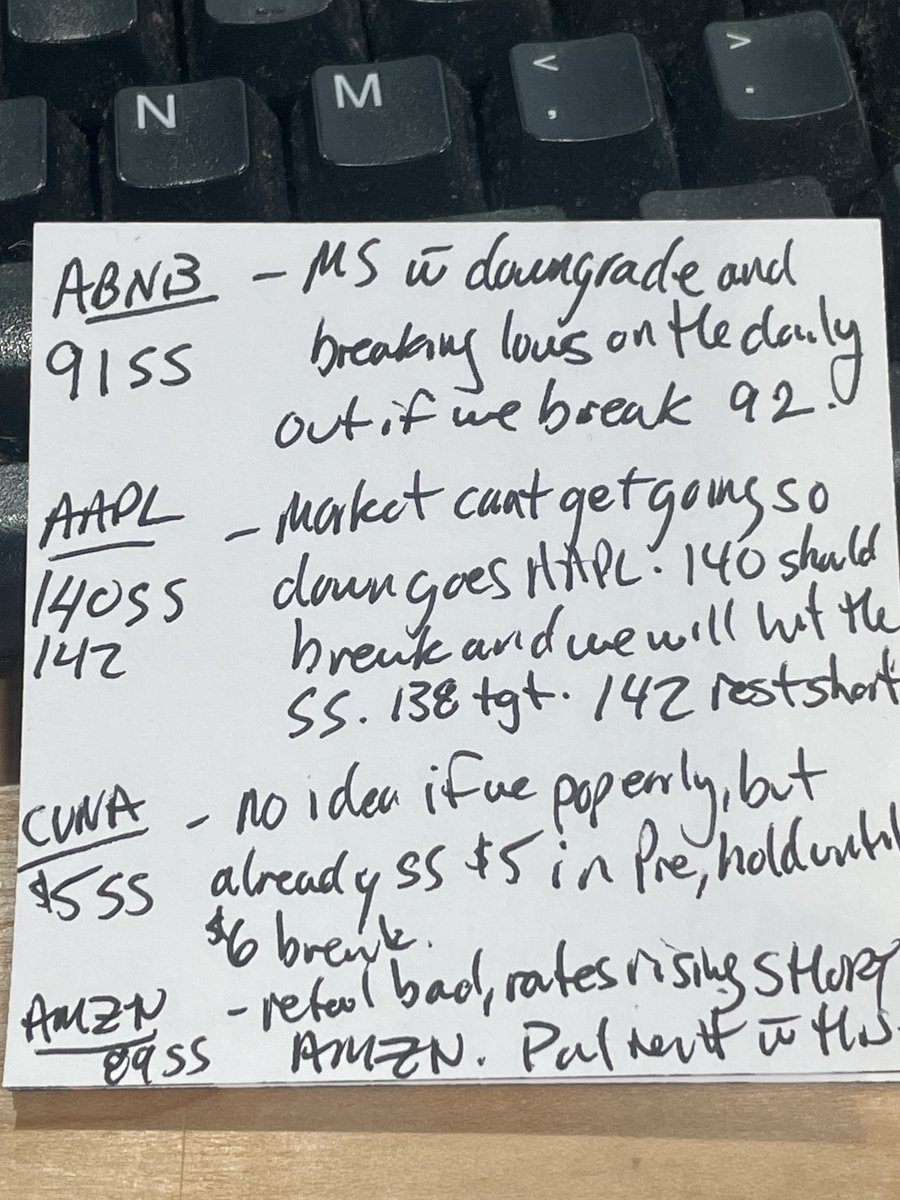 N M < , > .
ABNB - MS w̄ downgrade and
91SS breaking lows on the daily
out if we break 92.
AAPL - Market cant get going so
140SS down goes AAPL. 140 should
142 break and we will hit the
SS. 138 tgt. 142 rest short
CVNA - no idea if we pop early, but
$5SS already SS $5 in Pre, hold until
$6 break.
AMZN - retail bad, rates rising SHORT
89SS AMZN. w̄ this.